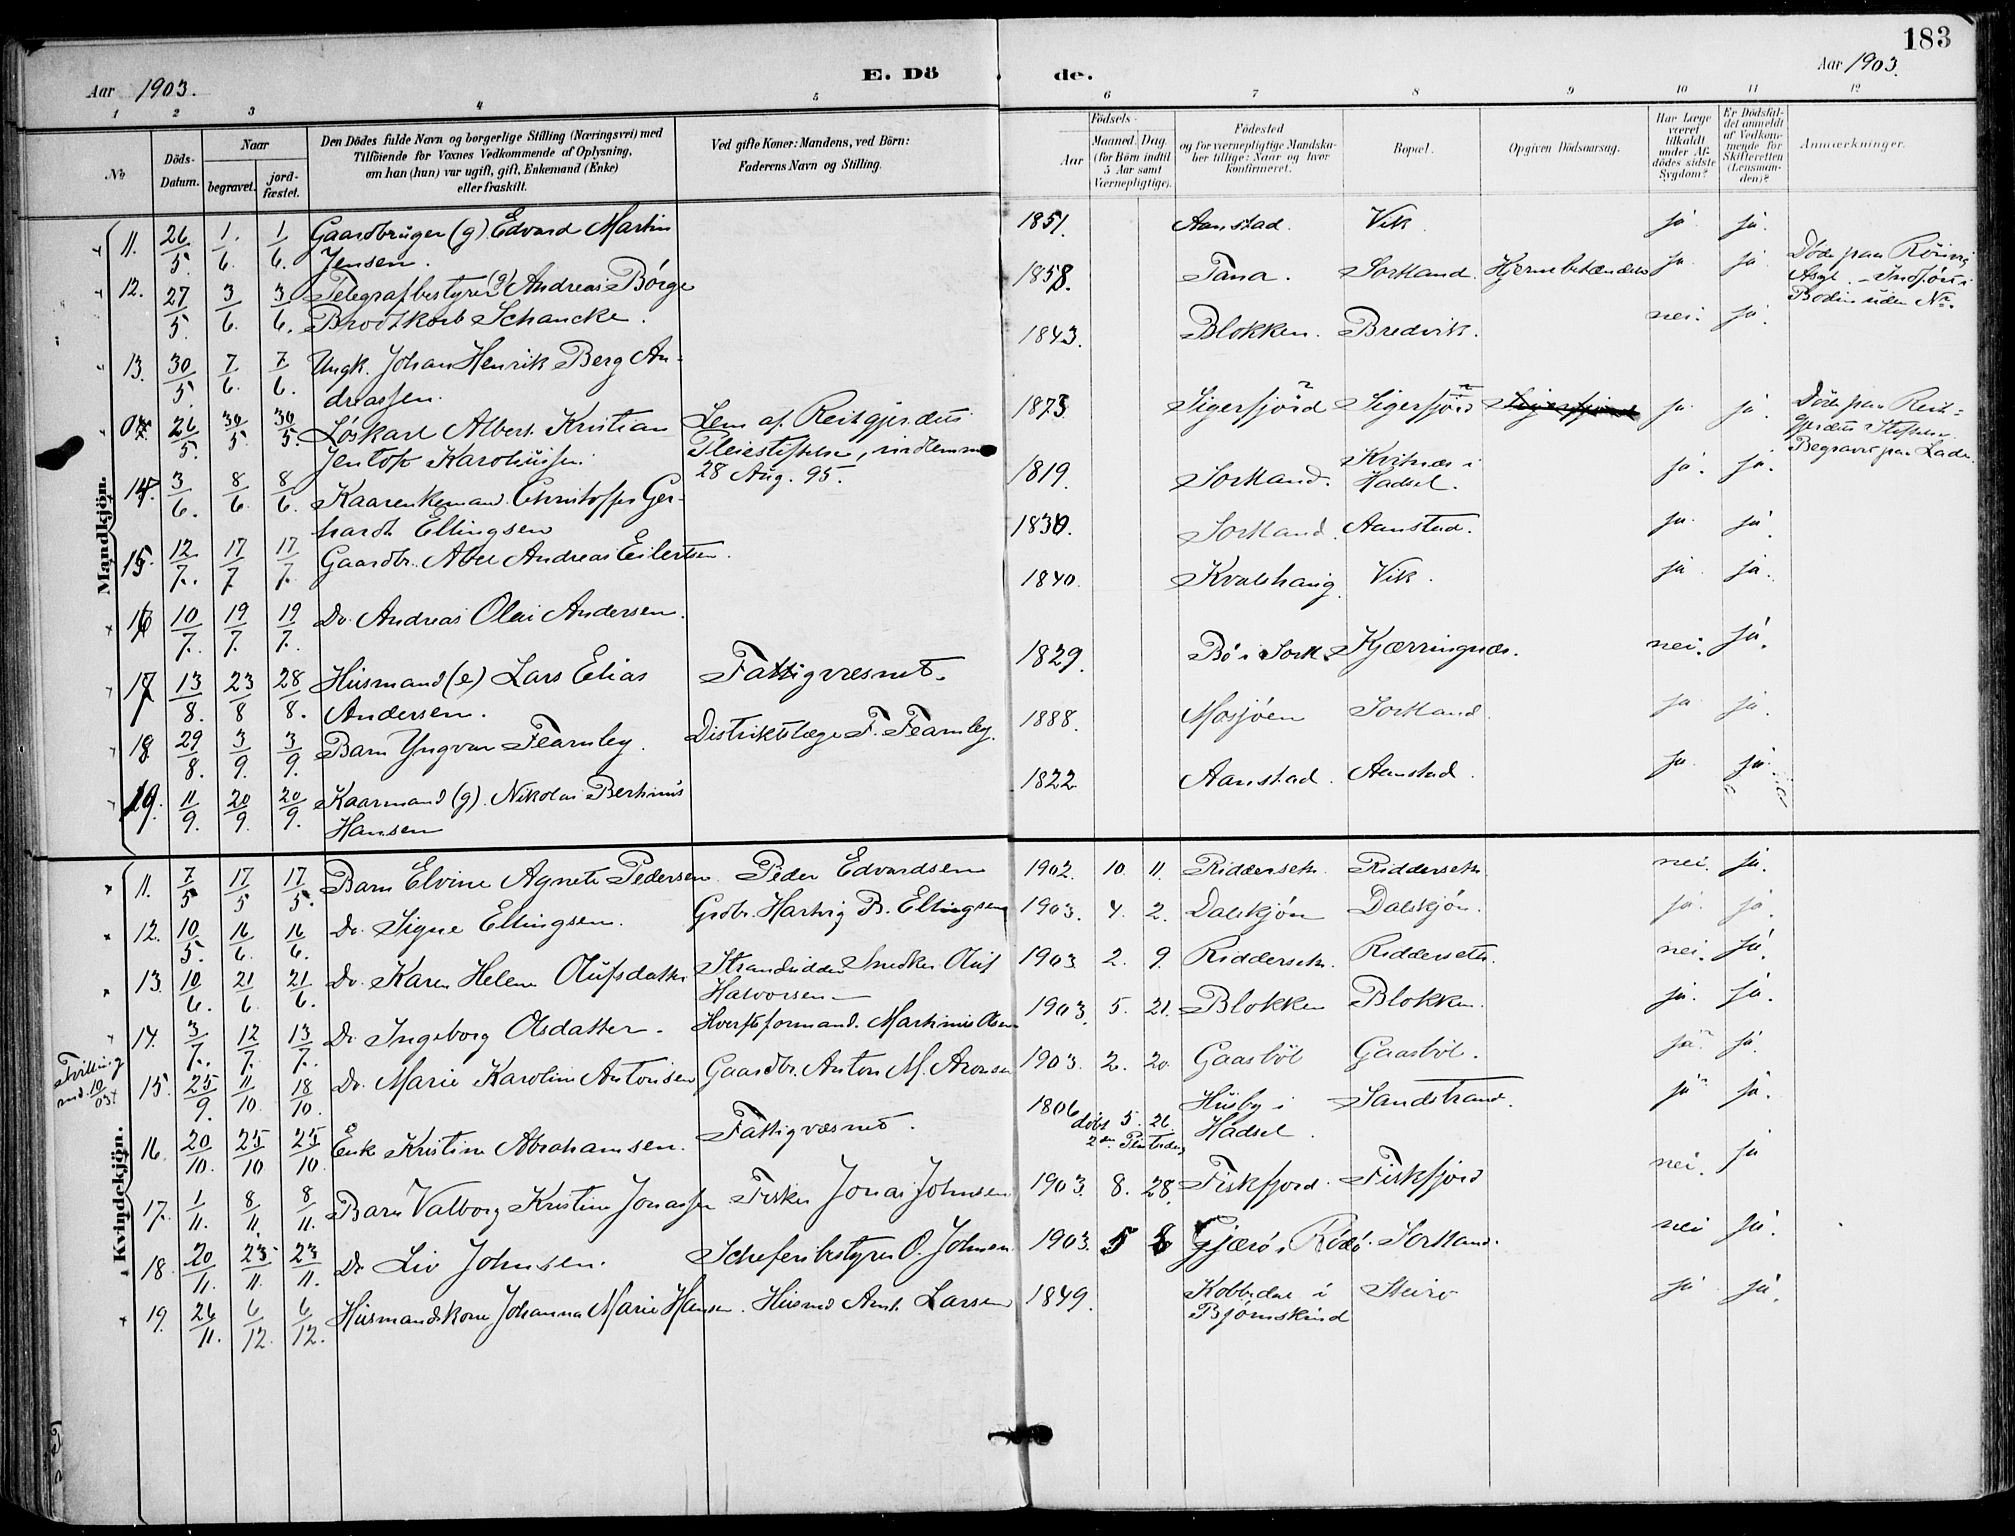 183
Aar 1903.
E. Dö de.
Aar 1903.
1 2 3 4 5 6 7 8 9 10 11 12
No
Döds-Datum.
Naar
begravet.
jord-fæstet.
Den Dödes fulde Navn og borgerlige Stilling (Næringsvei) med
Tilföiende for Voxnes Vedkommende af Oplysning,
om han (hun) var ugift, gift, Enkemand (Enke)
eller fraskilt.
Ved gifte Koner: Mandens, ved Börn:
Faderens Navn og Stilling.
Födsels-
Aar
Maaned. Dag.
(for Börn indtil
5 Aar samt
Værnepligtige).
Födested
og for værnepligtige Mandska-
ber tillige: Naar og hvor
konfirmeret.
Bopæl.
Opgiven Dödsaarsag.
Har Læge
været
tilkaldt
under Af-
dödes sidste
Sygdom?
Er Dödsfal-
det anmeldt
af Vedkom-
mende for
Skifteretten
(Lensman-
den)?
Anmærkninger.
Mandkjön.
11. 26/5 1/6. 1/6. Gaardbruger (g) Edvard Martin
Jensen. 1851. Aanstad. Vik. ja. ja.
12. 27/5 3/6. 3/6. Telegrafbestyrer (g) Andreas Börge
Brodtkorb Schancke. 1858. Tana. Sortland. Hjernebetændelse ja ja Døde paa Rönvig
Asyl. - Indført i
Bodin uden Nr.
13. 30/5 7/6. 7/6. Ungk. Johan Henrik Berg An-
dreassen. 1843. Blokken. Bredvik. nei. ja.
26/5. 30/5 30/5 Løskarl Albert Kristian
Jentoft Karoliussen. Lem af Reitgjerdets
Pleiestiftelse, indlemmet
28 Aug. 95. 1873 Sigerfjord Sigerfjord ja ja. Døde paa Reit-
gjerdets Stiftelse.
Begravet paa Lade.
14. 3/6. 8/6 8/6. Kaarenkemand Christoffer Ger-
hardt Ellingsen 1819. Sortland. Kvitnes i
Hadsel. ja. ja.
15. 12/7. 17/7 17/7. Gaardbr. Abel Andreas Eilertsen. 1830. Sortland. Aanstad. ja. ja.
16 10/7. 19/7. 19/7. Do. Andreas Olai Andersen. 1840. Kvalshaug Vik. ja. ja.
17 13/8. 23/8 28/8. Husmand (e) Lars Elias
Andersen. Fattigvæsnet. 1829. Bö i Sortl. Kjærringnæs. nei. ja.
18. 29/8. 3/9. 3/9. Barn Yngvar Fearnley. Distriktslæge F. Fearnley. 1888. Mosjöen Sortland. ja ja.
19. 11/9. 20/9. 20/9. Kaarmand (g). Nikolai Berthinus
Hansen 1822 Aanstad. Aanstad. ja. ja.
Kvindekjön.
11. 7/5 17/5 17/5. Barn Elvine Agnete Pedersen. Peder Edvardsen 1902. 10. 11. Ridderseth. Ridderseth. nei. ja.
12. 10/5. 16/6. 16/6. Do. Signe Ellingsen. Grdbr. Hartvig B. Ellingsen 1903. 4. 2. Dalskjön Dalskjön. ja. ja.
13. 10/6. 21/6. 21/6. Do. Karen Helene Olufsdatter Strandsidder Snedker Oluf
Halvorsen 1903 2. 9. Ridderseth. Ridderseth. nei. ja.
14. 3/7. 12/7. 13/7. Do. Ingeborg Olsdatter. Hverftsformand. Martinus Olsen 1903. 5. 21. Blokken Blokken. ja. ja.
Tvilling
15. 25/9. 11/10. 18/10. Do. Marie Karoline Antonsen Gaardbr. Anton M. Aronsen 1903. 2. 20. Gaasböl Gaasböl. ja. ja.
16. 20/10. 25/10 25/10. Enke Kristine Abrahamsen. Fattigvæsnet. 1806 döbt 5. 26.
2den Pintsedag Husby i
Hadsel. Sandstrand. ja ja.
17. 1/11. 8/11. 8/11. Barn Valborg Kristine Jonassen Fisker Jonas Johnsen 1903. 8. 28. Fiskfjord. Fiskfjord nei. ja
18. 20/11. 23/11. 23/11. Do. Liv Johnsen. Schäferibestyrer O. Johnsen. 1903. 5 8 Gjærö i Rödö. Sortland. nei ja.
19. 26/11. 6/12. 6/12. Husmandskone Johanna Marie Hansen. Husmd Arnt. Larsen 1849. Kobbedal i
Bjørnskind Steiro ja ja.